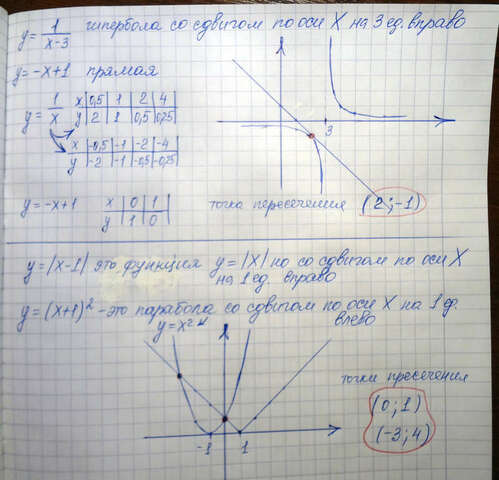 y = 1/(x-3) гипербола со сдвигом по оси X на 3 ед. вправо
y = -x+1 прямая
y = 1/x
x | 0,5 | 1 | 2 | 4
y | 2 | 1 | 0,5 | 0,25
x | -0,5 | -1 | -2 | -4
y | -2 | -1 | -0,5 | -0,25
3
y = -x+1
x | 0 | 1
y | 1 | 0
точка пересечения (2; -1)
y = |x-1| это функция y = |x| но со сдвигом по оси X
на 1 ед. вправо
y = (x+1)² - это парабола со сдвигом по оси X на 1 ед.
влево
y = x²
точки пресечения
(0; 1)
(-3; 4)
-1 1